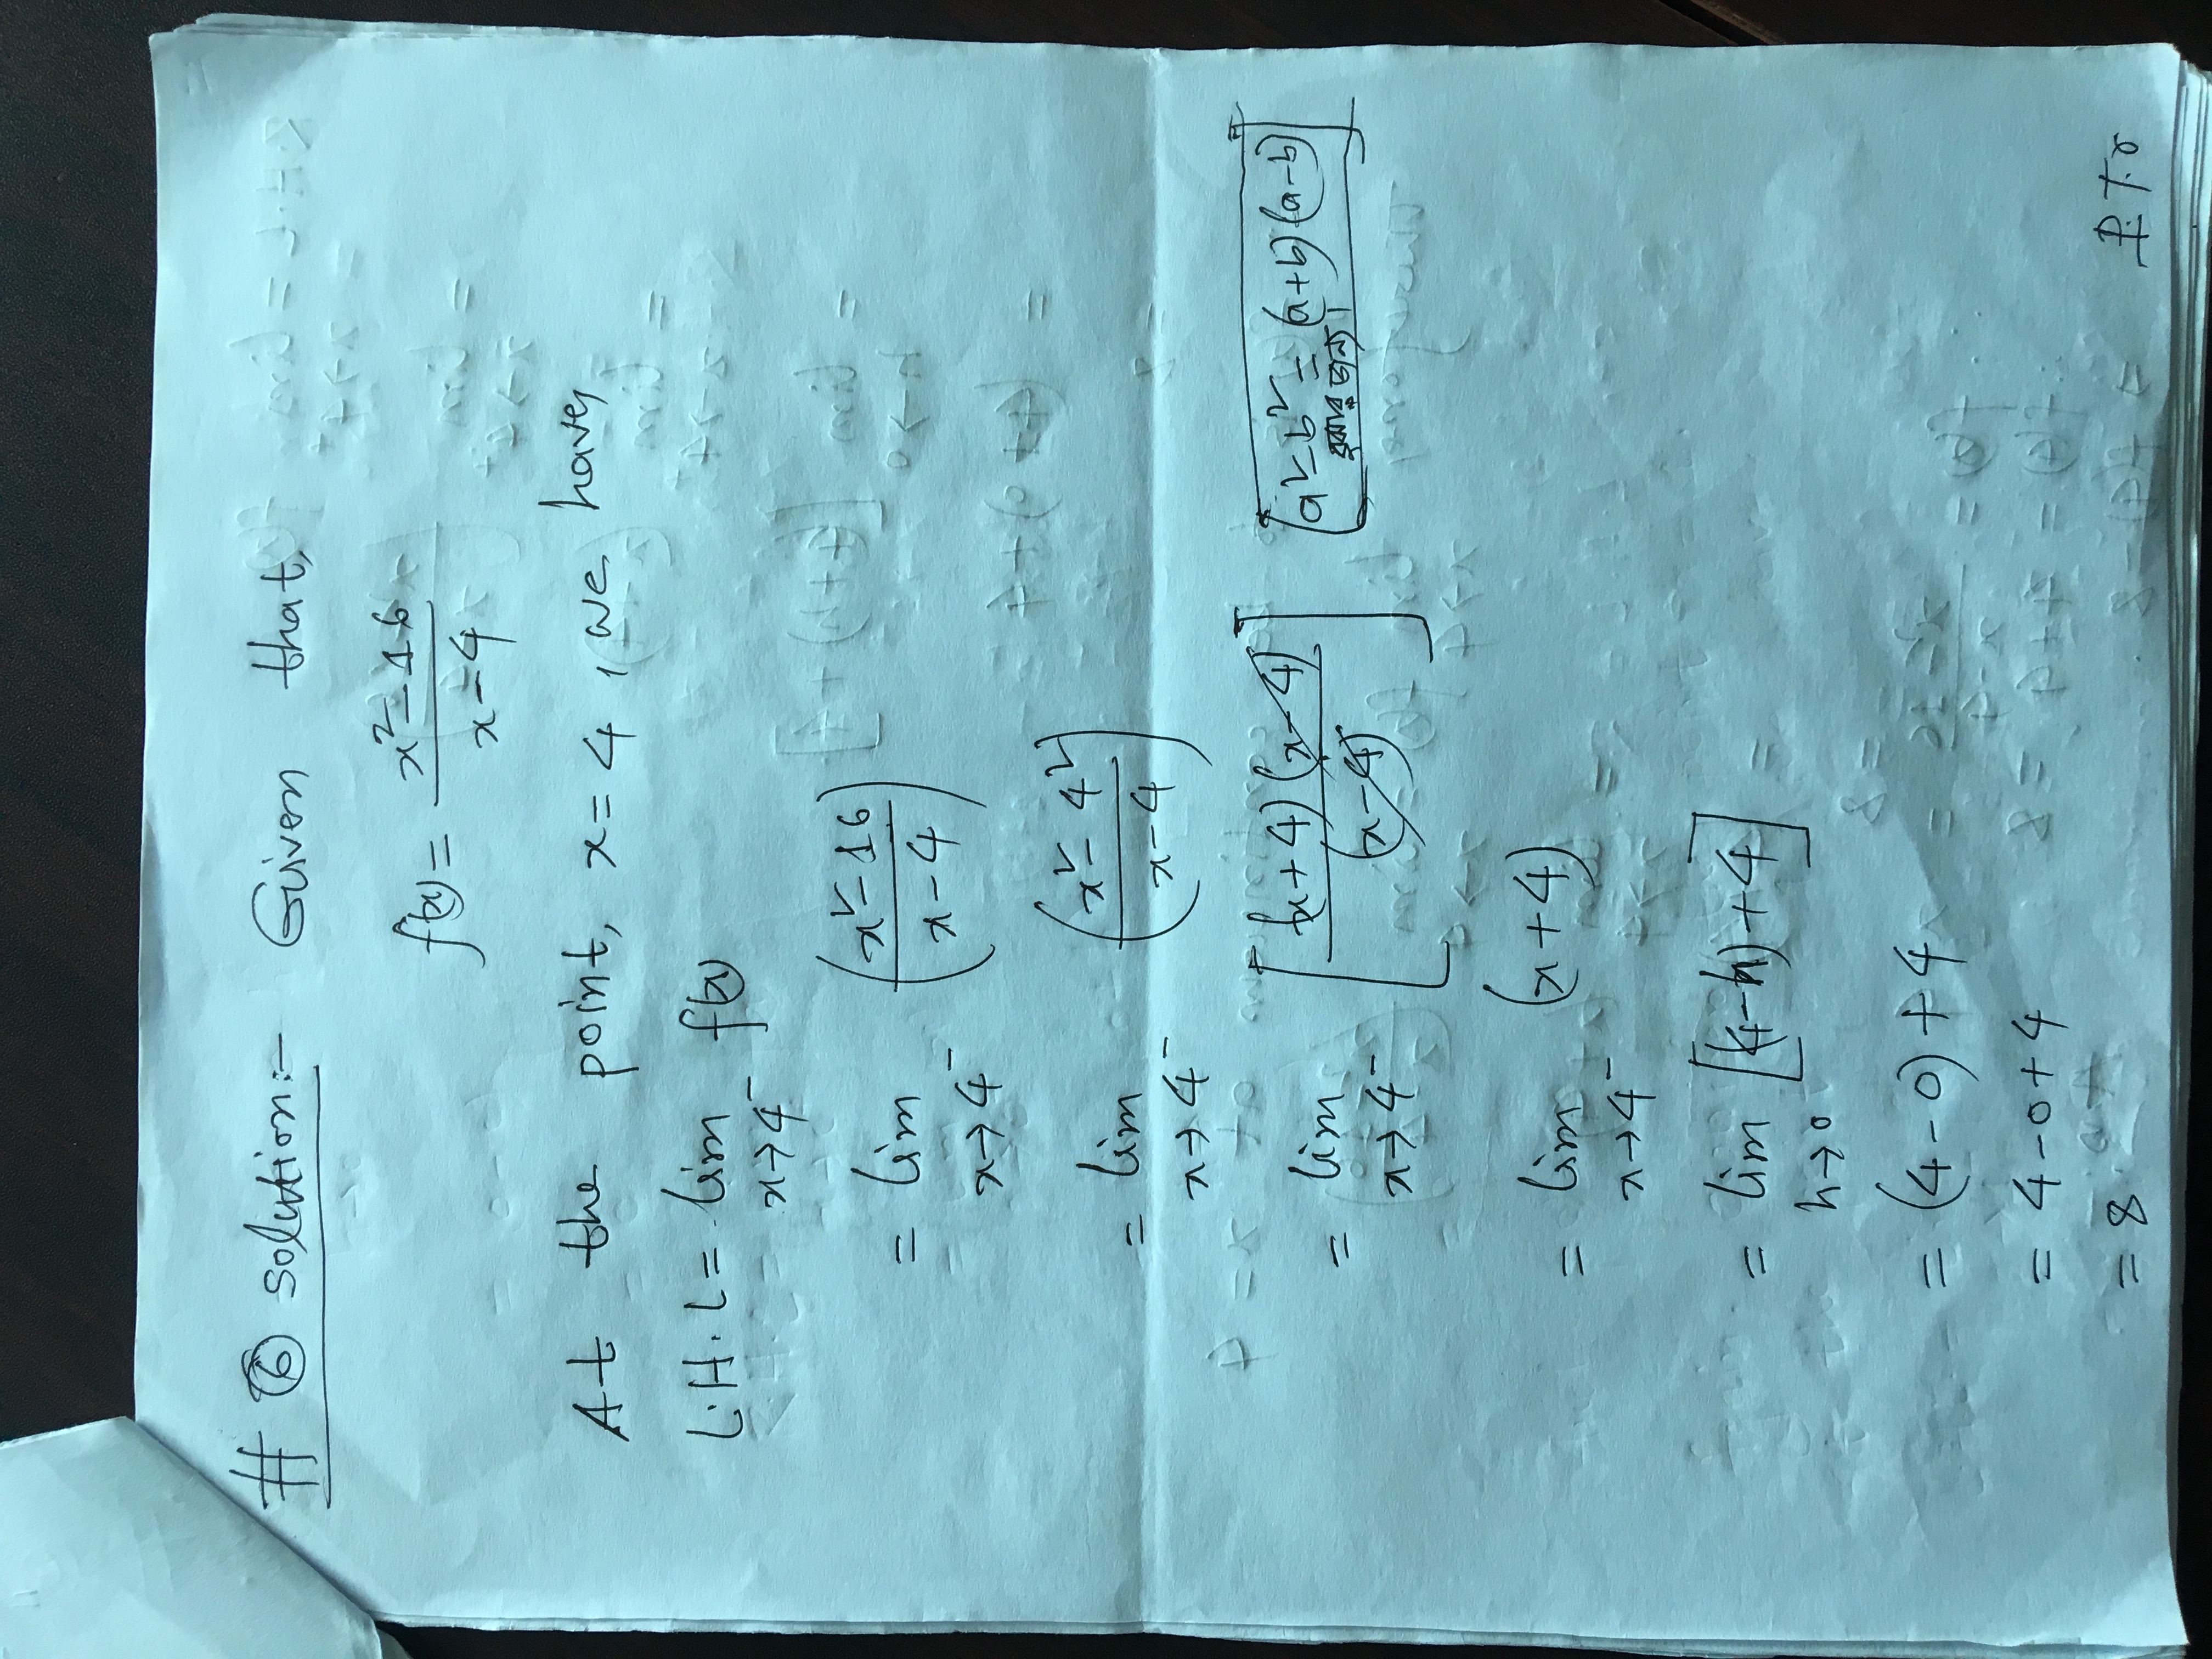 # ⑥ solution:- Given that,
f(x) = x²-16 / x-4
At the point, x = 4, we have,
L.H.L = lim x→4⁻ f(x)
= lim x→4⁻ (x²-16 / x-4)
= lim x→4⁻ (x²-4² / x-4)
= lim x→4⁻ [(x+4)(x-4) / (x-4)] [a²-b² = (a+b)(a-b)]
বুঝার জন্য।
= lim x→4⁻ (x+4)
= lim h→0 [(4-h)+4]
= (4-0)+4
= 4-0+4
= 8
P.T.O